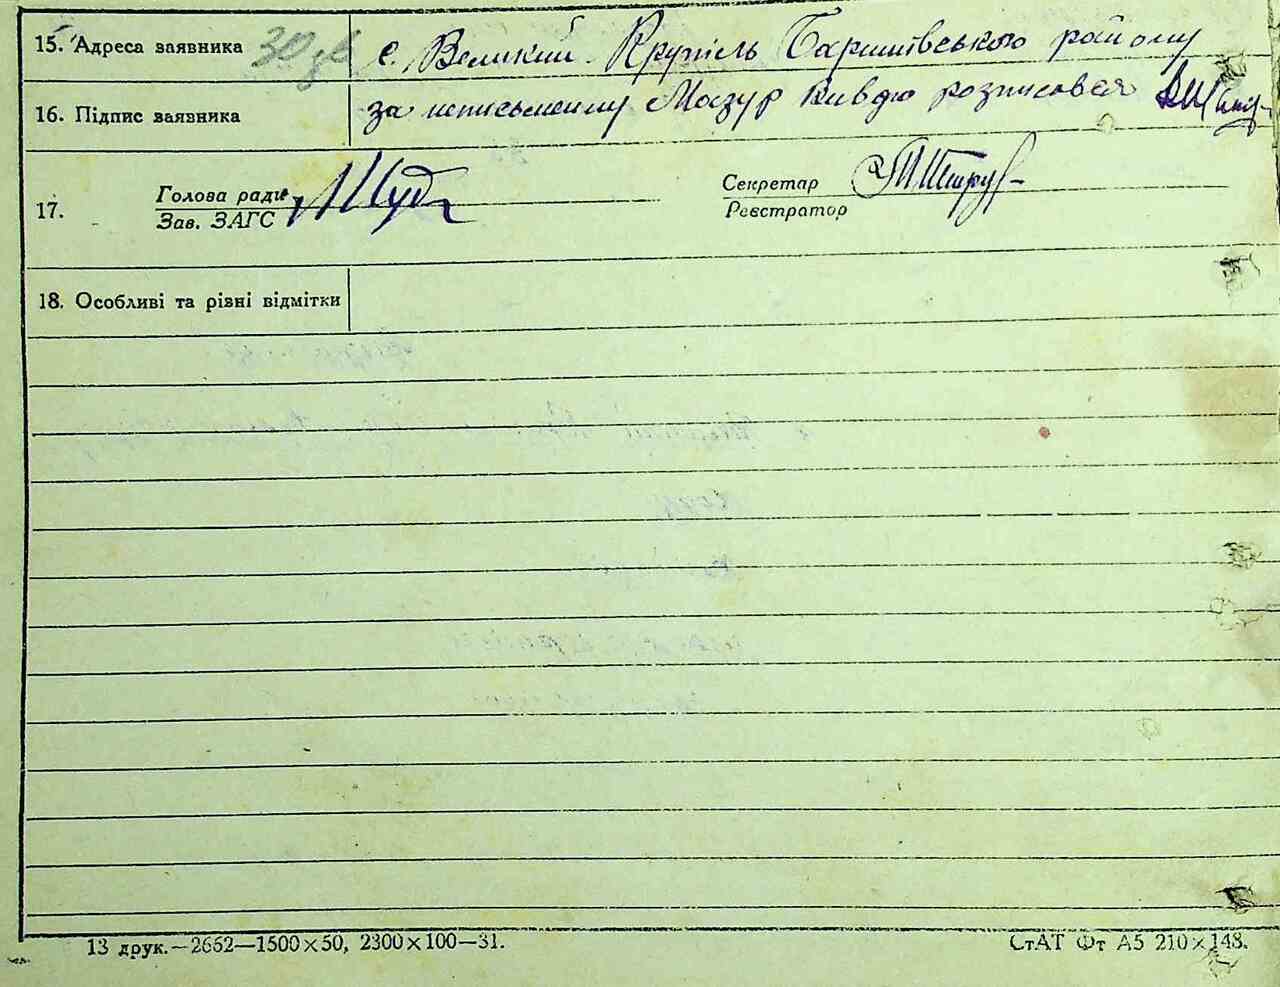 15. Адреса заявника с. Великий Крупіль Баришівського району
16. Підпис заявника за неписьменну Мазур розписався
Голова ради Секретар
17.
Зав. ЗАГС Реєстратор
18. Особливі та різні відмітки
13 друк.—2652—1500×50, 2300×100—31. СтАТ Фт А5 210×148.